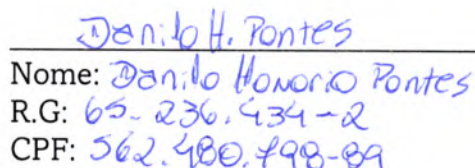 Danilo H. Pontes
Nome: Danilo Honorio Pontes
R.G: 65-236.434-2
CPF: 562.480.798-89